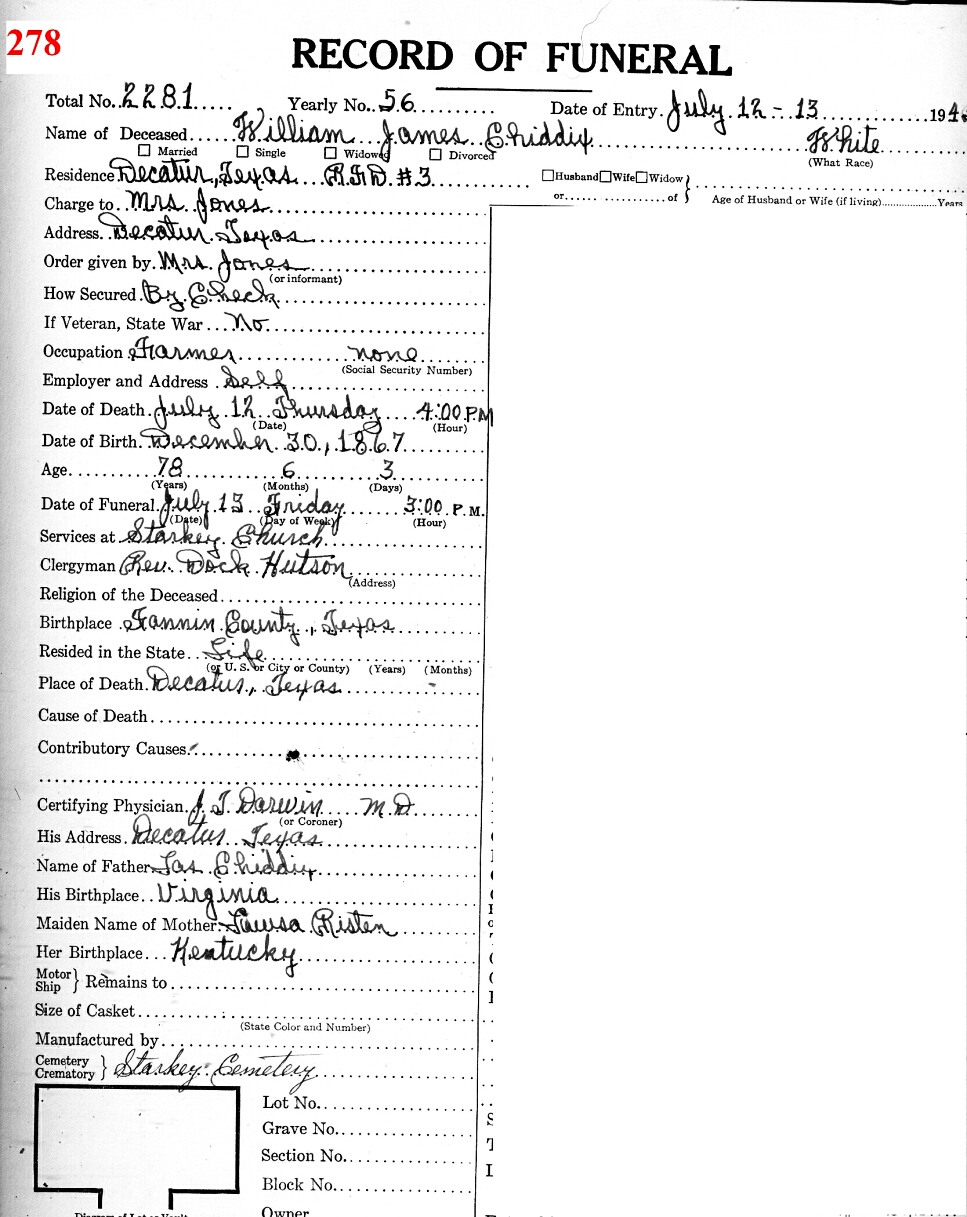 278
RECORD OF FUNERAL
Total No. 2281 Yearly No. 56 Date of Entry July 12-13 194
Name of Deceased William James Chiddix White
Married Single Widowed Divorced (What Race)
Residence Decatur, Texas R.F.D. #3 Husband Wife Widow
or of Age of Husband or Wife (if living) Years
Charge to Mrs Jones
Address Decatur Texas
Order given by Mrs. Jones
(or informant)
How Secured By Check
If Veteran, State War No
Occupation Farmer none
(Social Security Number)
Employer and Address Self
Date of Death July 12 Thursday 4:00 P.M
(Date) (Hour)
Date of Birth December 30, 1867
Age 78 6 3
(Years) (Months) (Days)
Date of Funeral July 13 Friday 3:00 P.M.
(Date) (Day of Week) (Hour)
Services at Starkey Church
Clergyman Rev. Dock Hutson
(Address)
Religion of the Deceased
Birthplace Fannin County, Texas
Resided in the State Life
(or U. S. or City or County) (Years) (Months)
Place of Death Decatur, Texas
Cause of Death
Contributory Causes
Certifying Physician J. T. Darwin M.D
(or Coroner)
His Address Decatur Texas
Name of Father Jas Chiddix
His Birthplace Virginia
Maiden Name of Mother Risten
Her Birthplace Kentucky
Motor Ship } Remains to
Size of Casket
(State Color and Number)
Manufactured by
Cemetery Crematory } Starkey Cemetery
Lot No.
Grave No.
Section No.
Block No.
Owner
Diagram of Lot or Vault